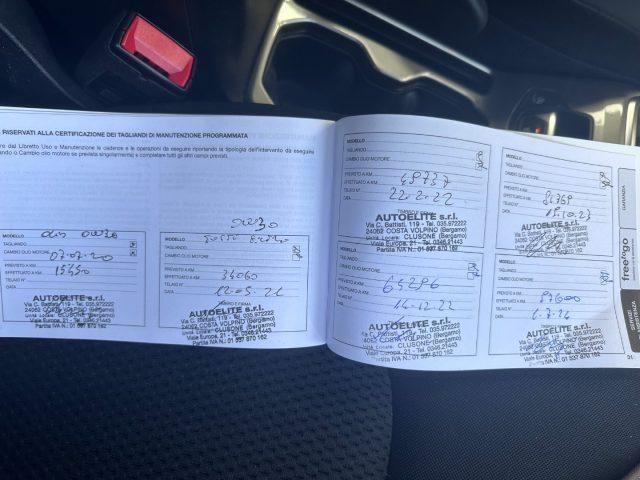 RISERVATI ALLA CERTIFICAZIONE DEI TAGLIANDI DI MANUTENZIONE PROGRAMMATA
dal Libretto Uso e Manutenzione le cadenze e le operazioni da eseguire riportando la tipologia dell'intervento da eseguire
o Cambio olio motore se prevista singolarmente) e completare tutti gli altri campi previsti.
MODELLO
TAGLIANDO
CAMBIO OLIO MOTORE
07.07.20
PREVISTO A KM
EFFETTUATO A KM 15450
TELAIO N°
DATA
AUTOELITE s.r.l.
Via C. Battisti, 119 - Tel. 035.972222
24062 COSTA VOLPINO (Bergamo)
Unità Locale: CLUSONE (Bergamo)
Viale Europa, 21 - Tel. 0346.21443
Partita IVA N.: 01 597 870 162
0W30
MODELLO
TAGLIANDO
CAMBIO OLIO MOTORE
PREVISTO A KM
EFFETTUATO A KM 34060
TELAIO N°
DATA 12-05.21
TIMBRO E FIRMA
AUTOELITE s.r.l.
Via C. Battisti, 119 - Tel. 035.972222
24062 COSTA VOLPINO (Bergamo)
Unità Locale: CLUSONE (Bergamo)
Viale Europa, 21 - Tel. 0346.21443
Partita IVA N.: 01 597 870 162
MODELLO
TAGLIANDO
CAMBIO OLIO MOTORE
PREVISTO A KM
EFFETTUATO A KM 49757
TELAIO N°
DATA 22.2.22
AUTOELITE s.r.l.
Via C. Battisti, 119 - Tel. 035.972222
24062 COSTA VOLPINO (Bergamo)
Unità Locale: CLUSONE (Bergamo)
Viale Europa, 21 - Tel. 0346.21443
Partita IVA N.: 01 597 870 162
MODELLO
TAGLIANDO
CAMBIO OLIO MOTORE
PREVISTO A KM
EFFETTUATO A KM 65296
TELAIO N°
DATA 14-12.22
AUTOELITE s.r.l.
Via C. Battisti, 119 - Tel. 035.972222
24062 COSTA VOLPINO (Bergamo)
Unità Locale: CLUSONE (Bergamo)
Viale Europa, 21 - Tel. 0346.21443
Partita IVA N.: 01 597 870 162
MODELLO
TAGLIANDO
CAMBIO OLIO MOTORE
PREVISTO A KM
EFFETTUATO A KM
TELAIO N°
DATA 15.10.23
AUTOELITE s.r.l.
Via C. Battisti, 119 - Tel. 035.972222
24062 COSTA VOLPINO (Bergamo)
Unità Locale: CLUSONE (Bergamo)
Viale Europa, 21 - Tel. 0346.21443
Partita IVA N.: 01 597 870 162
MODELLO
TAGLIANDO
CAMBIO OLIO MOTORE
PREVISTO A KM
EFFETTUATO A KM 97600
TELAIO N°
DATA
AUTOELITE s.r.l.
Via C. Battisti, 119 - Tel. 035.972222
24062 COSTA VOLPINO (Bergamo)
Unità Locale: CLUSONE (Bergamo)
Viale Europa, 21 - Tel. 0346.21443
Partita IVA N.: 01 597 870 162
GARANZIA
freetogo
31